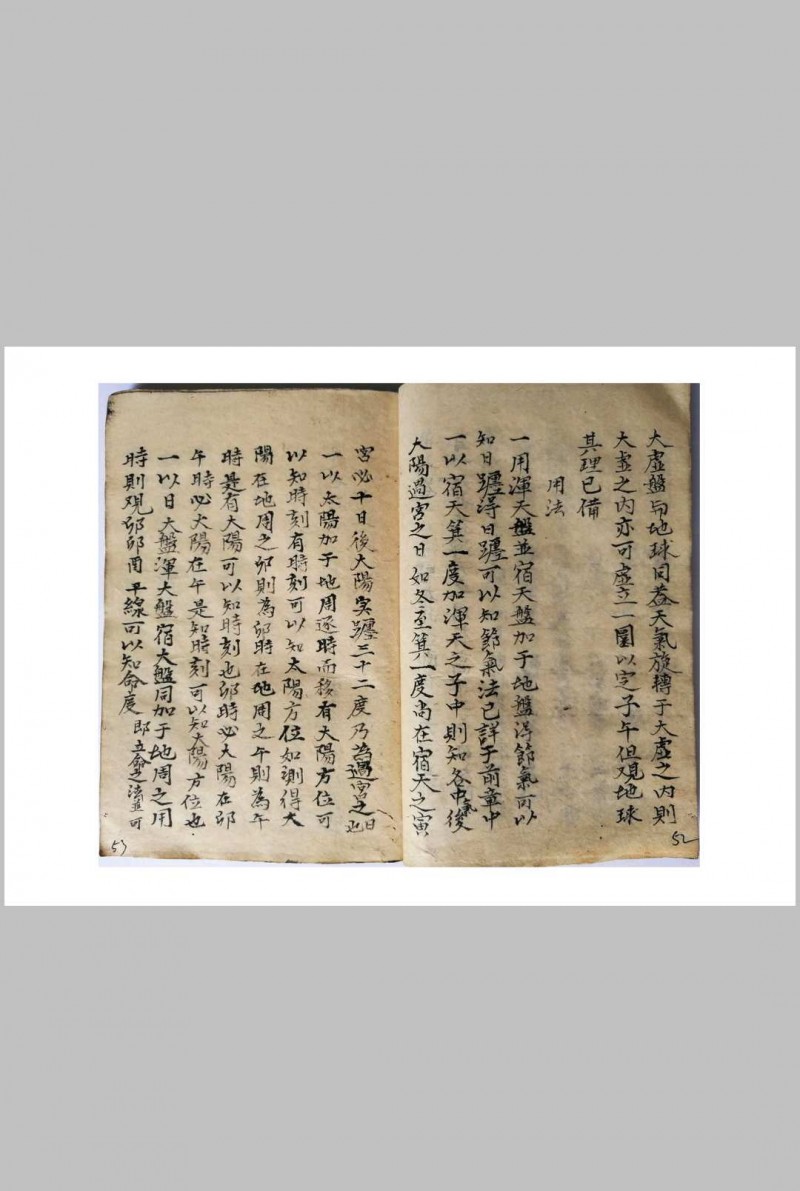 大虛盤與地球同葢天氣旋轉于大虛之內則
大虛之內亦可虛立一圈以定子午但观地球
其理已備
用法
一用渾天盤並宿天盤加于地盤得節氣可以
知日躔得日躔可以知節氣法已詳于前章中
一以宿天箕一度加渾天之子中則知各中氣後
太陽過宮之日如冬至箕一度尚在宿天之寅
52
宮必十日後太陽実躔三十二度乃為過宮之日也
一以太陽加于地周逐時而移有太陽方位可
以知時刻有時刻可以知太陽方位如測得太
陽在地周之卯則為卯時在地周之午則為午
時是有太陽可以知時刻也卯時必太陽在卯
午時必太陽在午是知時刻可以知太陽方位也
一以日天盤渾天盤宿天盤同加于地周之用
時則观卯酉平線可以知命度即立命之法並可
53